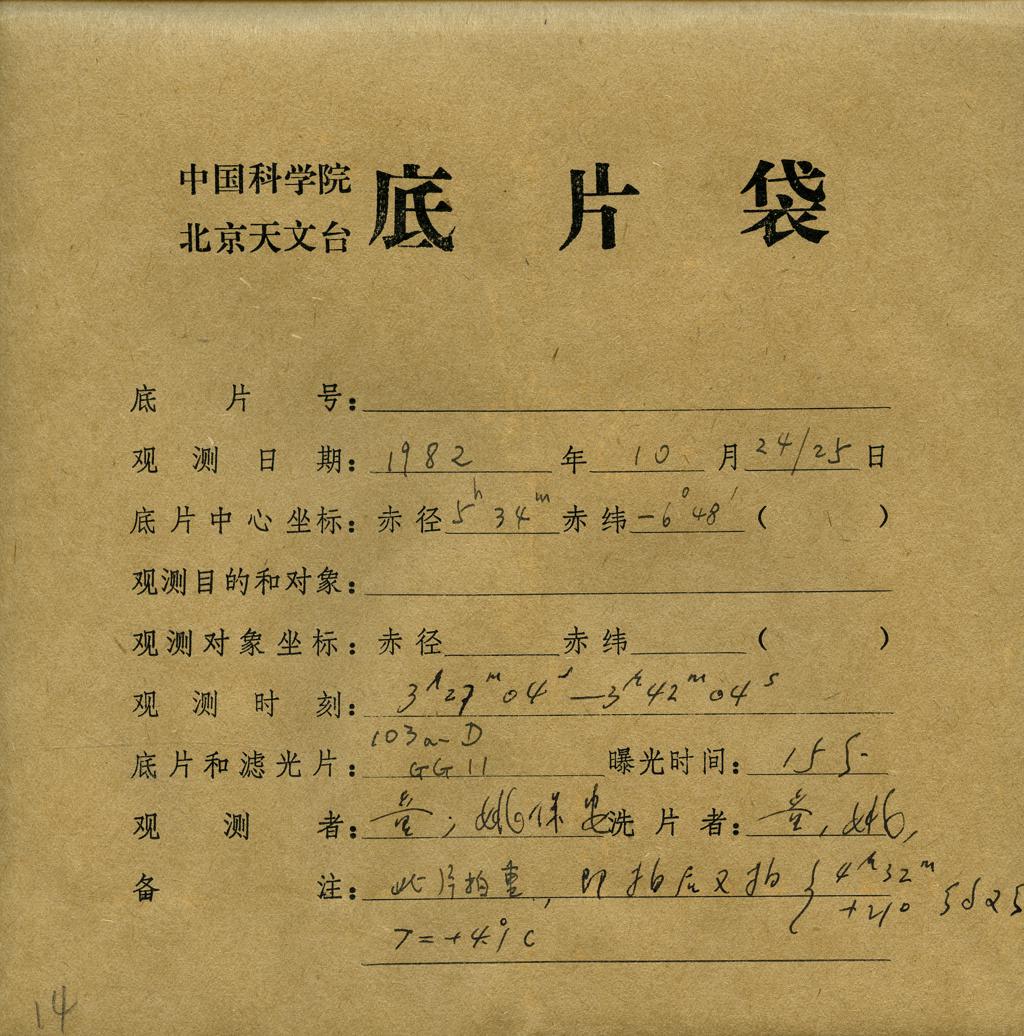 中国科学院
北京天文台
底片袋
底片号：
观测日期：1982年10月24/25日
底片中心坐标：赤径5ʰ34ᵐ赤纬-6°48′（ ）
观测目的和对象：
观测对象坐标：赤径 赤纬 （ ）
观测时刻：3ʰ27ᵐ04ˢ—3ʰ42ᵐ04ˢ
103a-D
底片和滤光片：GG11 曝光时间：15
观测者：姚保安 洗片者：姚
备注：此片拍重，即拍后又拍{4ʰ32ᵐ
+21°
T=+4.°1C
14